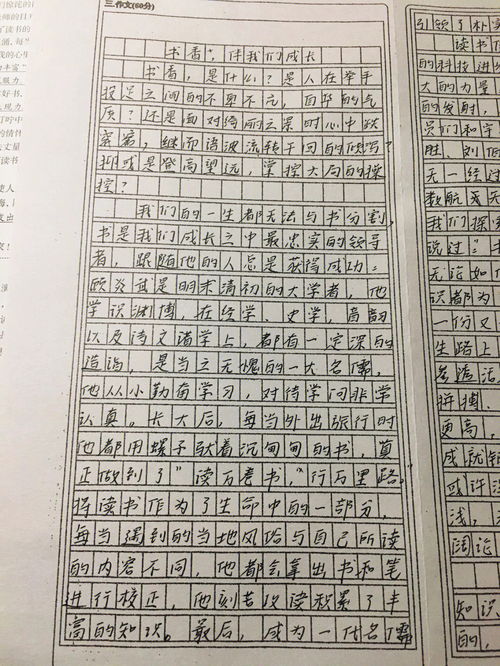 三.作文(60分)
书香，伴我们成长
书香，是什么？是人在举手
投足之间的不卑不亢，自华的气
质？还是面对绮丽之景时心中跃
而波流转千回的
抑或是登高望远，掌控大局的
控？
我们的一生都无法与书分割，
书是我们成长之中最忠实的领导
者，跟随他的人总是获得成功：
顾炎武是明末清初的大学者，他
学识渊博，在经学、史学，音韵
以及诗文诸学上，都有一定深的
造诣，是当之无愧的一大名儒，
他从小勤奋学习，对待学问非常
认真。长大后，每当外出旅行时
他都用骡子驮着沉甸甸的书，真
正做到了“读万卷书，”“行万里路。
将读书作为了生命中的一部分，
每当遇到的当地风俗与自己所读
的内容不同，他都会拿出书和笔
进行校正，他刻苦攻读积累了丰
富的知识。最后，成为一代名儒
引领了朴实
读书
的科技进
大的力量
的发射，
员们和学
胜、刘
无一经过
数航天
我们探
说过：“书
无论如
识都为
一份又
生路上
参透
拼搏
更高，
成就
或许
浅，
阔论
知识
的，